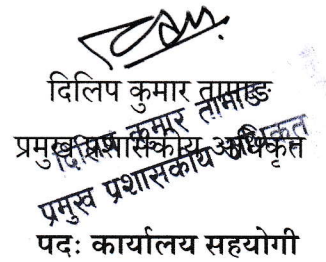 दिलिप कुमार तामाङ
प्रमुख प्रशासकीय अधिकृत
दिलिप कुमार तामाङ
प्रमुख प्रशासकीय अधिकृत
पदः कार्यालय सहयोगी